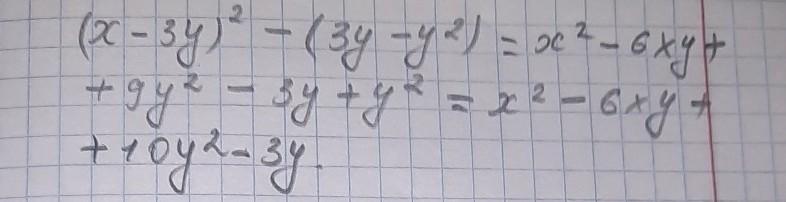 (x - 3y)² - (3y - y²) = x² - 6xy +
+ 9y² - 3y + y² = x² - 6xy +
+ 10y² - 3y.